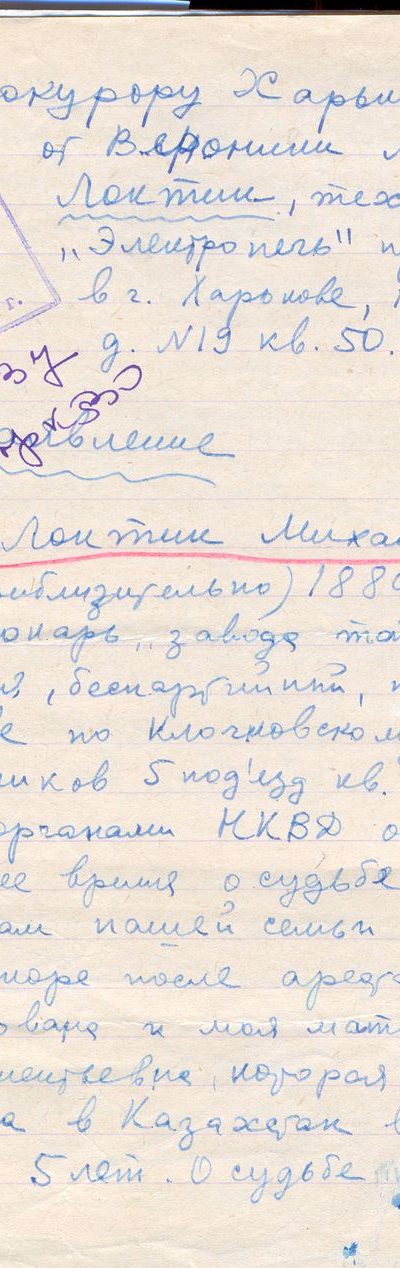 окурору Харьк
от Вероники
Локтик, тех
„Электропечь" п
г.
в г. Харькове,
д. №19 кв. 50.
аявление
Локтик Миха
иблизительно) 188
онарь „завода
ия, беспартийный,
е по Клочковско
ников 5 под'езд кв.
органами НКВД о
ее время о судьбе
ам нашей семьи
коре после арест
ована и моя мат
ментьевна, которая
а в Казахстан в
5 лет. О судьбе